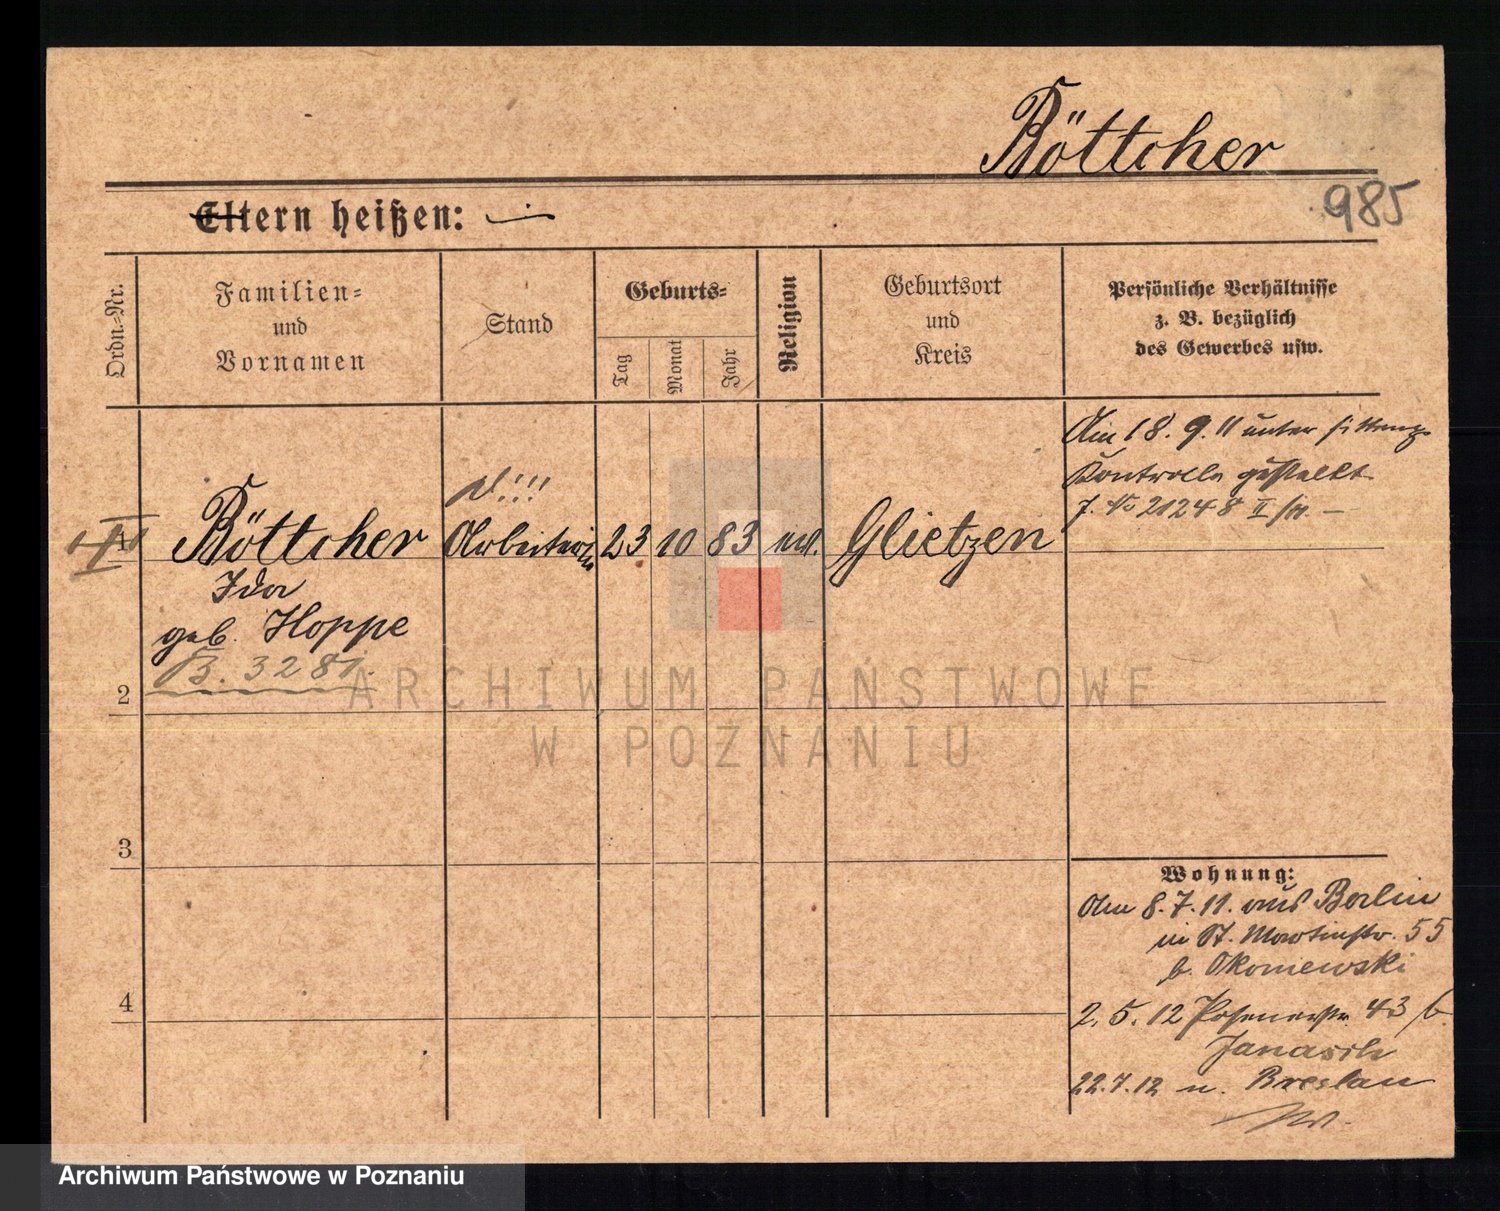 Böttcher
985
Eltern heißen:
Ordn.-Nr.
Familien-
und
Vornamen
Stand
Geburts-
Tag
Monat
Jahr
Religion
Geburtsort
und
Kreis
Persönliche Verhältnisse
z. B. bezüglich
des Gewerbes usw.
Am 18. 9. 11 unter sittenpz.
Kontrolle gestellt
J. No 21248 II
1 Böttcher Arbeiterin 23 10 83 ev. Glietzen
Ida
geb. Hoppe
B. 3281.
2
3
4
Wohnung:
Am 8. 7. 11. aus Berlin
in St. Martinstr. 55
b. Okoniewski
2. 5. 12 Posenerstr. 43 b.
Janasik
22. 7. 12 n. Breslau
ARCHIWUM PAŃSTWOWE
W POZNANIU
Archiwum Państwowe w Poznaniu